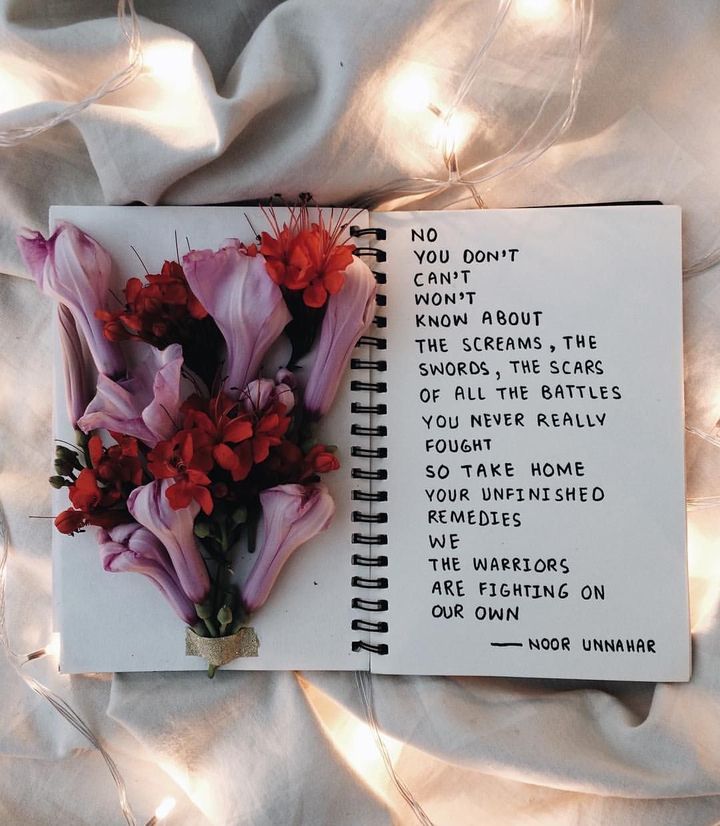 NO
YOU DON'T
CAN'T
WON'T
KNOW ABOUT
THE SCREAMS, THE
SWORDS, THE SCARS
OF ALL THE BATTLES
YOU NEVER REALLY
FOUGHT
SO TAKE HOME
YOUR UNFINISHED
REMEDIES
WE
THE WARRIORS
ARE FIGHTING ON
OUR OWN
— NOOR UNNAHAR